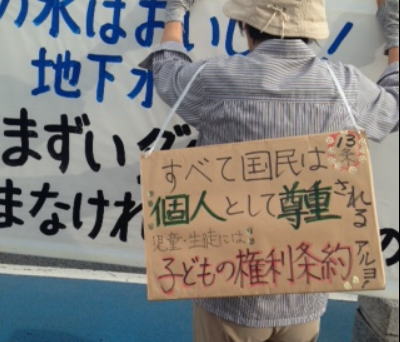 の水はおいしい!
地下水
まずい
まなけれ
13条
すべて国民は
個人として尊重される
児童・生徒には
子どもの権利条約アルヨ!
の